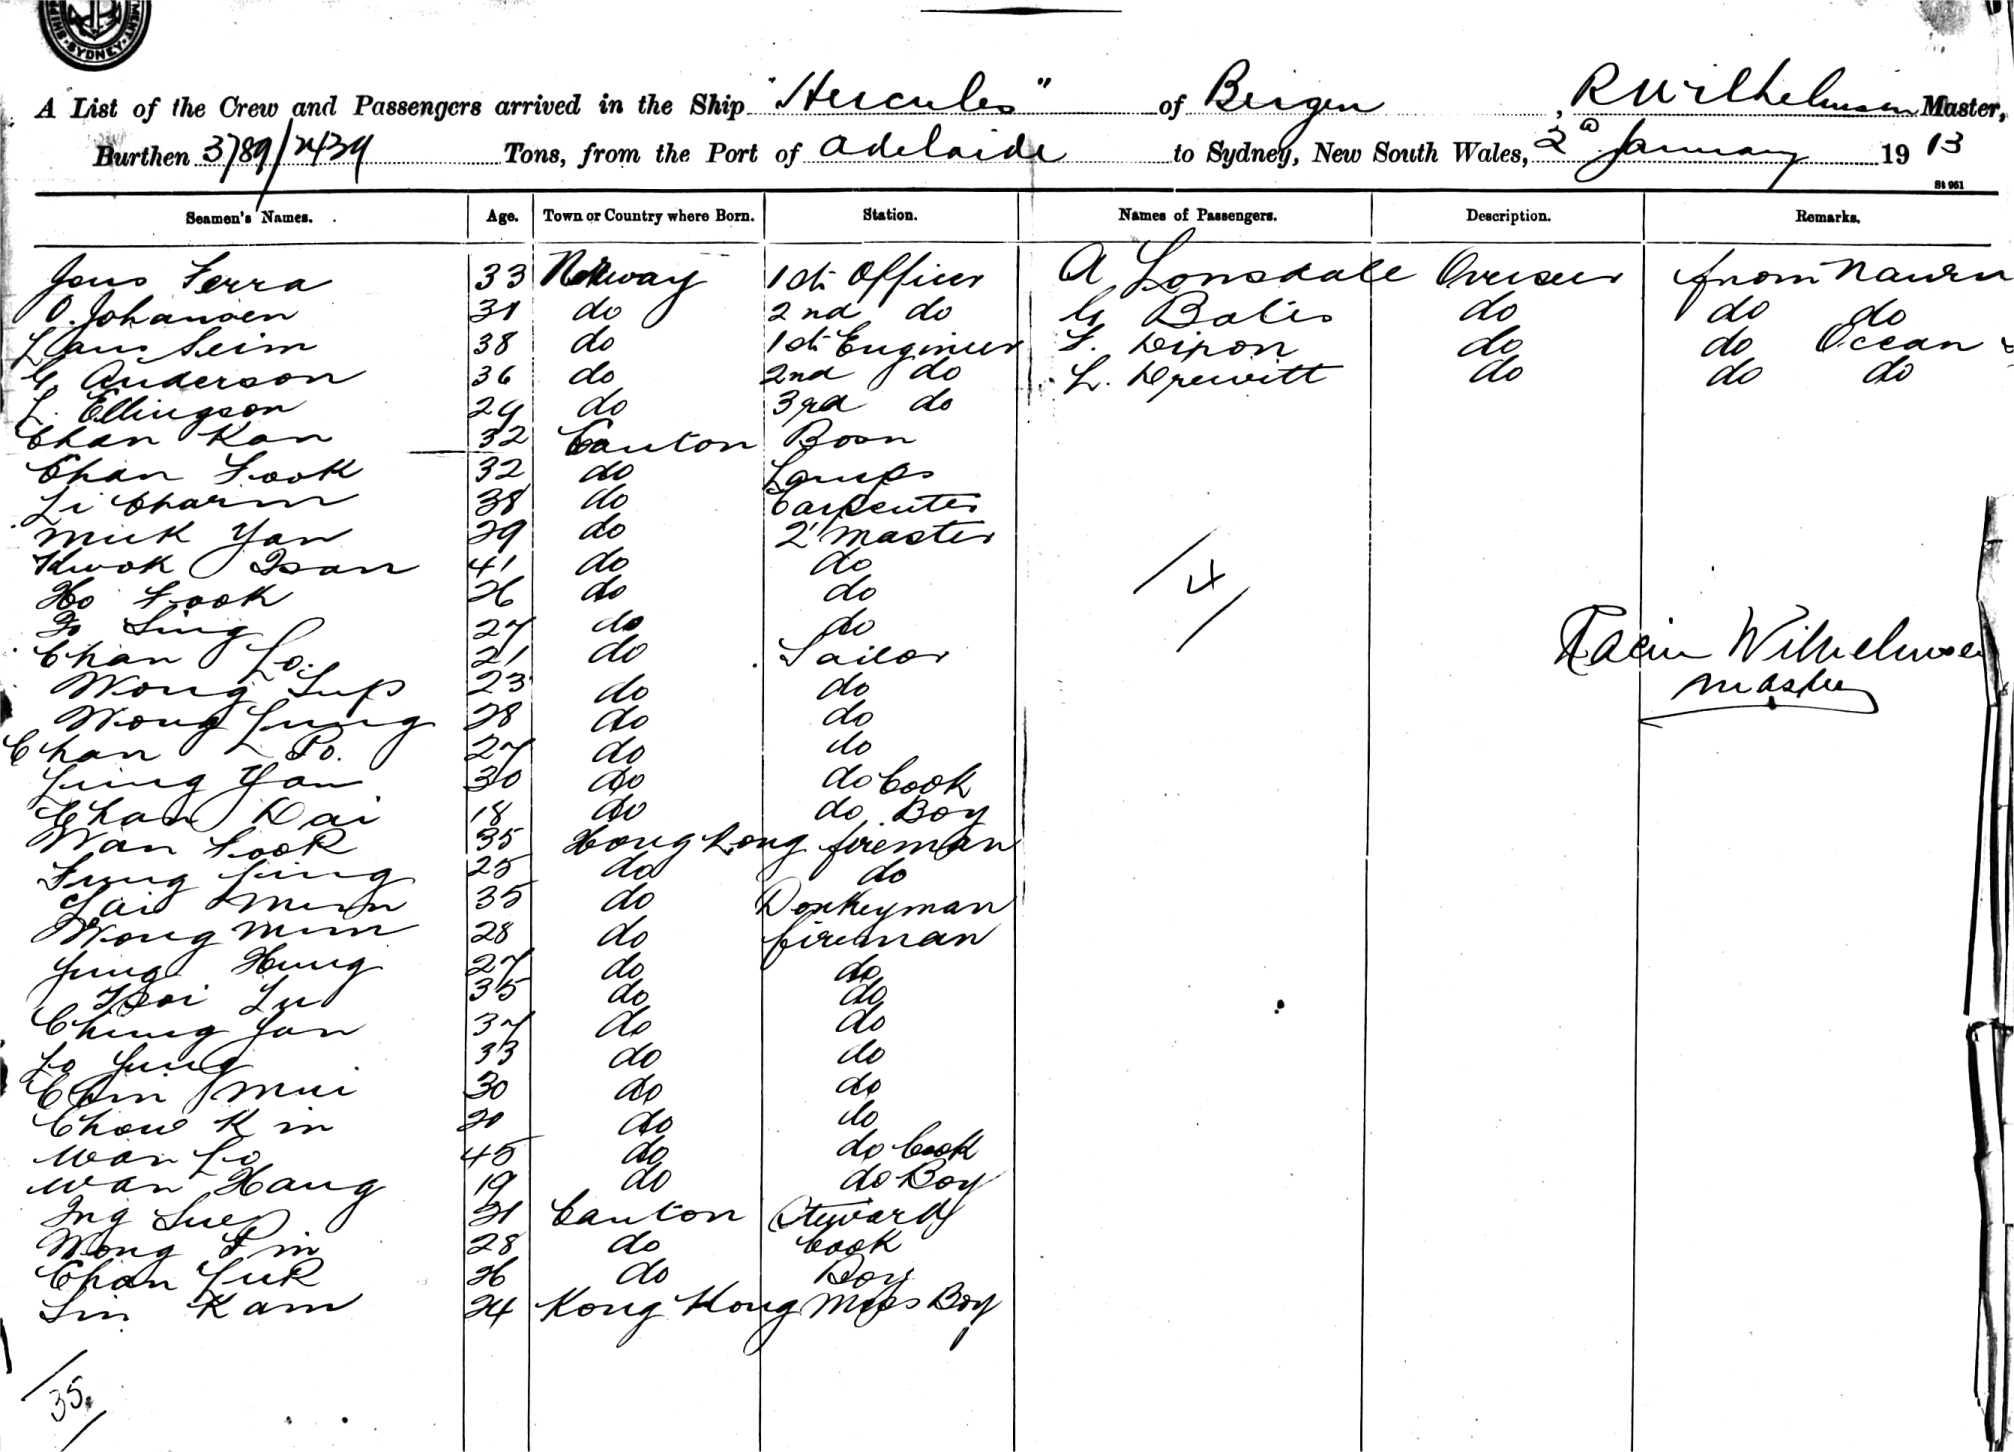 SYDNEY
A List of the Crew and Passengers arrived in the Ship "Hercules" of Bergen, R Wilhelmsen Master,
Burthen 3789/2439 Tons, from the Port of Adelaide to Sydney, New South Wales, 2d January 1913
St 961
Seamen's Names. Age. Town or Country where Born. Station. Names of Passengers. Description. Remarks.
Jens Ferra 33 Norway 1st Officer A Lonsdale Overseer from Nauru
O. Johansen 31 do 2nd do G Bates do do do
Lars Seim 38 do 1st Engineer F. Dixon do do Ocean
G Anderson 36 do 2nd do L. Drewitt do do do
L. Ellingson 29 do 3rd do
Chan Kan 32 Canton Bosn
Chan Fook 32 do Lamps
Li Charm 38 do Carpenter
Muk Yan 29 do 2' Master
Kwok Tsan 41 do do
Ho Fook 26 do do
Fo Sing 27 do do
Chan Lo. 21 do Sailor
Wong Sup 23 do do
Wong Sung 28 do do
Chan Po. 27 do do
Yung Yan 30 do do Cook
Chan Dai 18 do do Boy
Wan Fook 35 Hong Kong fireman
Fung Sing 25 do do
Lai Mun 35 do Donkeyman
Wong Mun 28 do fireman
Yung Hung 27 do do
Tsoi Lu 35 do do
Chung Yan 37 do do
Lo Yung 33 do do
Chin Mui 30 do do
Chow Kin 20 do do
Wan Lo 45 do do Cook
Wan Hang 19 do do Boy
Ing Suey 31 Canton Steward
Wong Pin 28 do Cook
Chan Yuk 26 do Boy
Sin Kam 24 Kong Hong Mess Boy
/4/
Wilhelmsen
Master
/35./